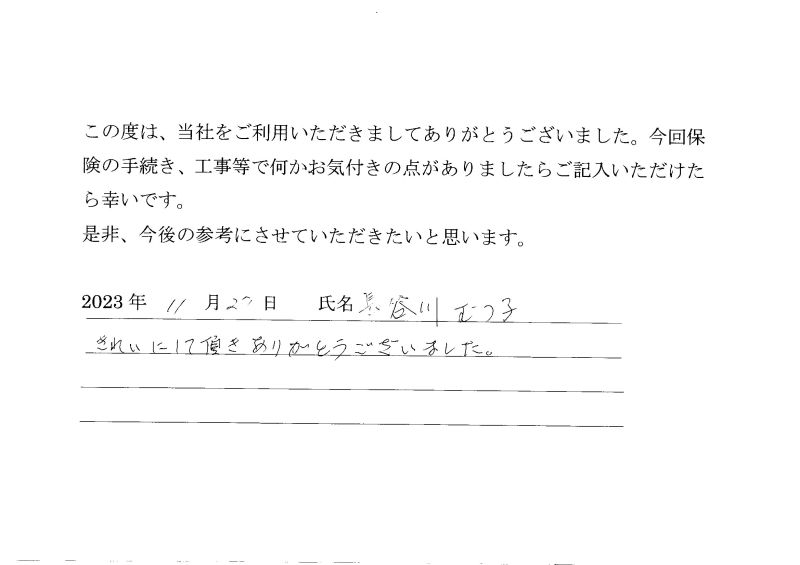 この度は、当社をご利用いただきましてありがとうございました。今回保
険の手続き、工事等で何かお気付きの点がありましたらご記入いただけた
ら幸いです。
是非、今後の参考にさせていただきたいと思います。
2023 年 11 月 27 日 氏名 長谷川 むつ子
きれいにして頂きありがとうございました。